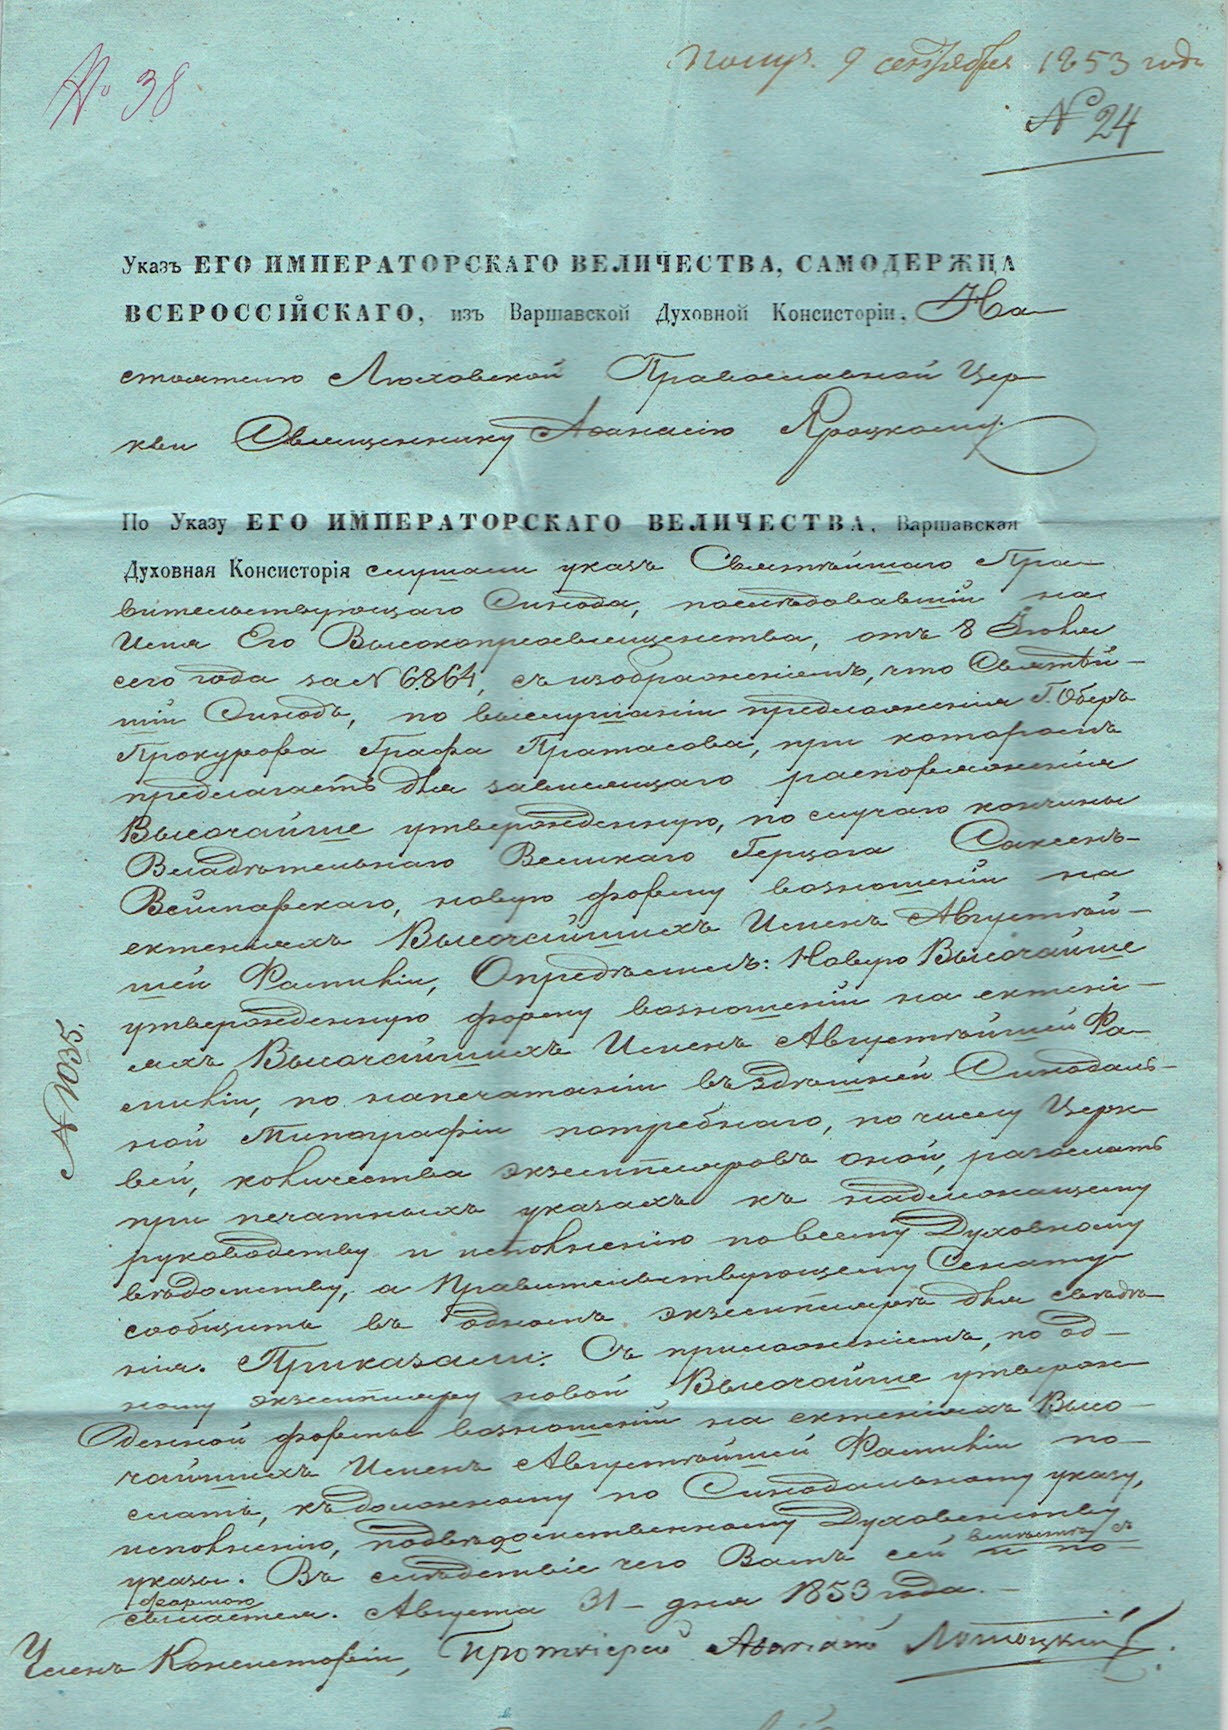 № 38
получ. 9 сентября 1853 года
№ 24
Указъ ЕГО ИМПЕРАТОРСКАГО ВЕЛИЧЕСТВА, САМОДЕРЖЦА
ВСЕРОССІЙСКАГО, изъ Варшавской Духовной Консисторіи, На-
стоятелю Люховской Православной Цер-
кви Священнику Аѳанасію Яроцкому.
По Указу ЕГО ИМПЕРАТОРСКАГО ВЕЛИЧЕСТВА, Варшавская
Духовная Консисторія слушали указъ Святѣйшаго Пра-
вительствующаго Синода, послѣдовавшій на
Имя Его Высокопреосвященства, отъ 8 Іюля
сего года за № 6864, съ изображеніемъ, что Святѣй-
шій Синодъ, по выслушаніи предложенія Г. Оберъ
Прокурора Графа Пратасова, при которомъ
предлагаетъ для зависящаго распоряженія
Высочайше утвержденную, по случаю кончины
Владѣтельнаго Великаго Герцога Саксенъ-
Веймарскаго, новую форму возношеній на
ектеніяхъ Высочайшихъ Именъ Августѣй-
шей Фамиліи, Опредѣлилъ: Новую Высочайше
утвержденную форму возношеній на ектені-
яхъ Высочайшихъ Именъ Августѣйшей Фа-
миліи, по напечатаніи въ здѣшней Синодаль-
ной Типографіи потребнаго, по числу Церк-
вей, количества экземпляровъ оной, разослать
при печатныхъ указахъ къ надлежащему
руководству и исполненію по всему Духовному
вѣдомству, а Правительствующему Сенату
сообщить въ одномъ экземплярѣ для свѣдѣ-
нія. Приказали: Съ приложеніемъ, по од-
ному экземпляру новой Высочайше утверж-
денной формы возношеній на ектеніяхъ Высо-
чайшихъ Именъ Августѣйшей Фамиліи по-
слать, къ должному по Синодальному указу,
исполненію, подвѣдомственному Духовенству
указы. Въ слѣдствіе чего Вамъ сей вмѣстѣ съ и по-
формою
сылается. Августа 31 - дня 1853 года. -
Членъ Консисторіи, Протоіерей Лотоцкій
№ 1035.